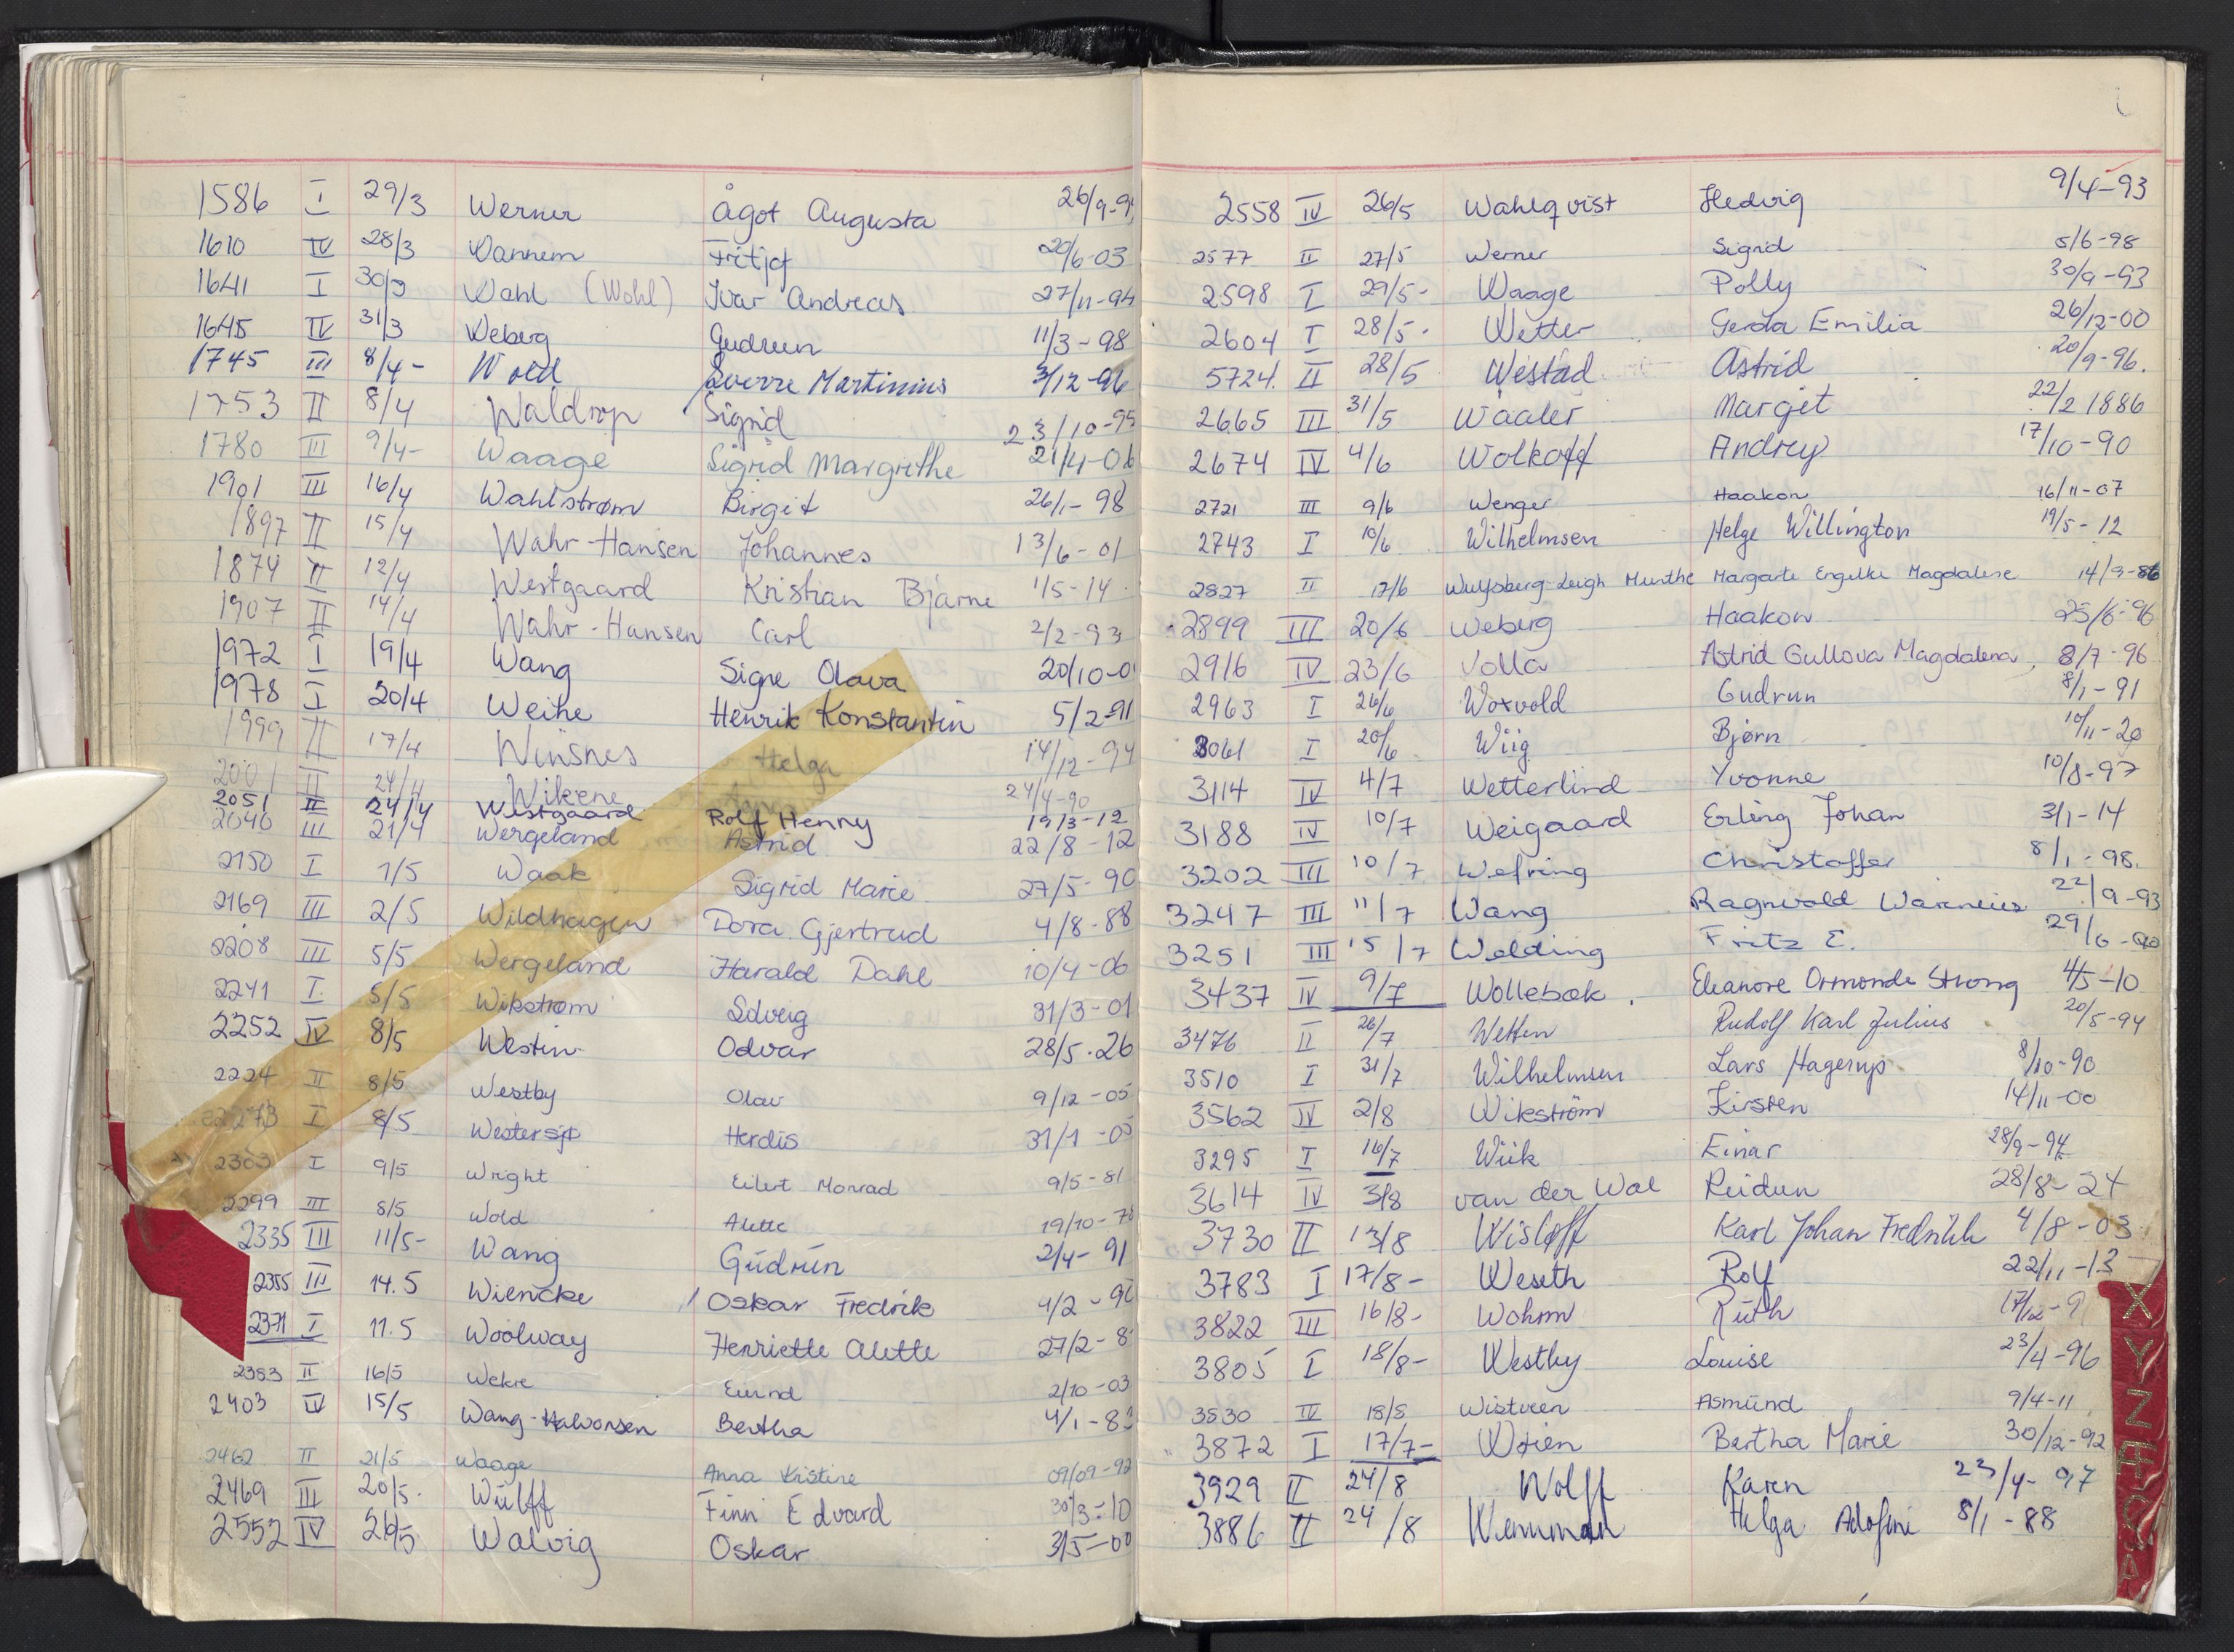 1586 I 29/3 Werner Ågot Augusta 26/9-9
1610 IV 28/3 Wannem Fritjof 20/6-03
1641 I 30/3 Wahl (Wohl) Ivar Andreas 27/11-94
1645 IV 31/3 Weberg Gudrun 11/3-98
1745 III 8/4- Wold Sverre Martinius 3/12-96
1753 II 8/4 Waldrop Sigrid 23/10-95
1780 III 9/4- Waage Sigrid Margrethe 21/4-06
1901 III 16/4 Wahlstrøm Birgit 26/1-98
1897 II 15/4 Wahr-Hansen Johannes 13/6-01
1874 II 12/4 Westgaard Kristian Bjarne 1/5-14
1907 II 14/4 Wahr-Hansen Carl 2/2-93
1972 I 19/4 Wang Signe Olava 20/10-0
1978 I 20/4 Weihe Henrik Konstantin 5/2-91
1999 II 17/4 Winsnes Helga 14/12-94
2001 II 24/4 Wikene 24/4-90
2051 II 24/4 Westgaard Rolf Henny 19/3-12
2040 III 21/4 Wergeland Astrid 22/8-12
2150 I 1/5 Waak Sigrid Marie 27/5-90
2169 III 2/5 Wildhagen Dora Gjertrud 4/8-88
2208 III 5/5 Wergeland Harald Dahl 10/4-06
2241 I 5/5 Wikstrøm Solveig 31/3-01
2252 IV 8/5 Westin Odvar 28/5-26
2224 II 8/5 Westby Olav 9/12-05
2273 I 8/5 Westersjø Herdis 31/1-05
2303 I 9/5 Wright Eilert Monrad 9/5-81
2299 III 8/5 Wold Alette 19/10-78
2335 III 11/5- Wang Gudrun 2/4-91
2355 III 14.5 Wiencke Oskar Fredrik 4/2-90
2371 I 11.5 Woolway Henriette Alette 27/2-8
2383 II 16/5 Wekre Eivind 2/10-03
2403 IV 15/5 Wang-Halvorsen Bertha 4/1-83
2462 II 21/5 Waage Anna Kristine 09/09-92
2469 III 20/5. Wulff Finn Edvard 30/3-10
2552 IV 26/5 Walvig Oskar 3/5-00
2558 IV 26/5 Wahlqvist Hedvig 9/4-93
2577 II 27/5 Werner Sigrid 5/6-98
2598 I 29/5- Waage Polly 30/9-93
2604 I 28/5. Wetter Gerda Emilia 26/12-00
5724. II 28/5 Westad Astrid 20/9-96.
2665 III 31/5 Waaler Margit 22/2 1886
2674 IV 4/6 Wolkoff Andrey 17/10-90
2721 III 9/6 Wenger Haakon 16/11-07
2743 I 10/6 Wilhelmsen Helge Willington 19/5-12
2827 II 17/6 Wulfsberg-Leigh Munthe Margarte Engelke Magdalene 14/9-86
2899 III 20/6 Weberg Haakon 25/6-96
2916 IV 23/6 Volla Astrid Gullova Magdalena, 8/7-96
2963 I 26/6 Woxvold Gudrun 8/1-91
3061 I 20/6 Wiig Bjørn 10/11-20
3114 IV 4/7 Wetterlind Yvonne 10/8-97
3188 IV 10/7 Weigaard Erling Johan 3/1-14
3202 III 10/7 Wefring Christoffer 8/1-98.
3247 III 11/7 Wang Ragnvald Warneius 22/9-93
3251 III 15/7 Welding Fritz E. 29/6-00
3437 IV 9/7 Wollebæk. Eleanore Ormonde Strong 4/5-10
3476 II 26/7 Wetten Rudolf Karl Julius 20/5-94
3510 I 31/7 Wilhelmsen Lars Hagerup 8/10-90
3562 IV 2/8 Wikström Kirsten 14/11-00
3295 I 16/7 Wiik Einar 28/9-94
3614 IV 3/8 van der Wal Reidun 28/8-24
3730 II 13/8 Wisløff Karl Johan Fredrikh 4/8-03
3783 I 17/8- Weseth Rolf 22/11-13
3822 III 16/8- Wohrm Ruth 17/12-9
3805 I 18/8- Westby Louise 23/4-96
3830 IV 18/8 Wistveen Asmund 9/4-11
3872 I 17/7- Woien Bertha Marie 30/12-92
3929 II 24/8 Wolff Karen 23/4-97
3886 II 24/8 Wennman Helga Adofine 8/1-88
X
Y
Z
Æ
Ø
Å